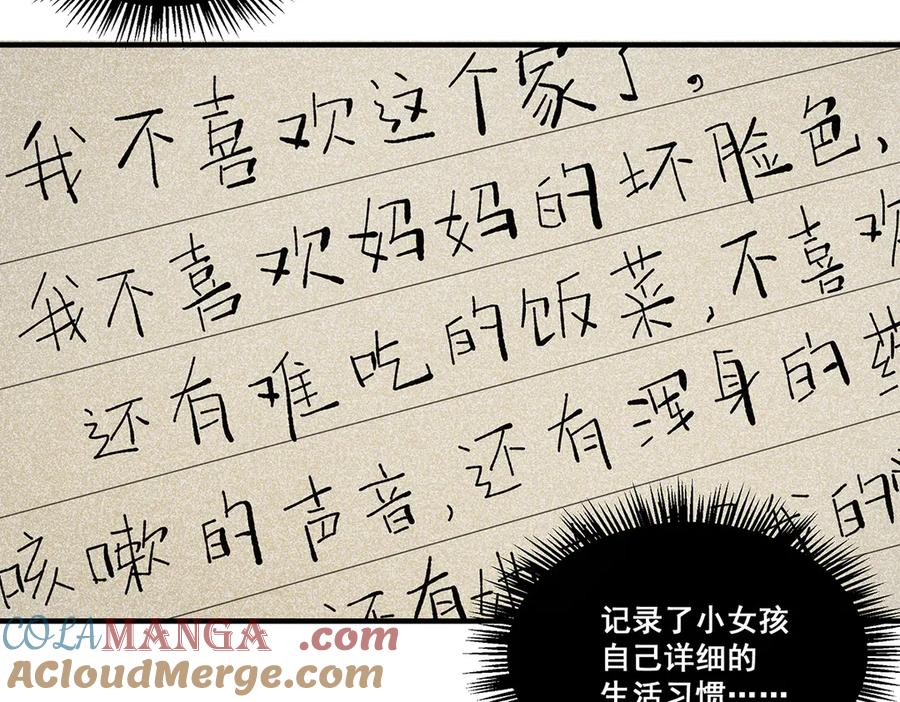 我不喜欢这个家了。
我不喜欢妈妈的坏脸色,
还有难吃的饭菜,不喜欢
咳嗽的声音,还有浑身的药
还有 的
记录了小女孩
自己详细的
生活习惯……
COLAMANGA.com
AcloudMerge.com